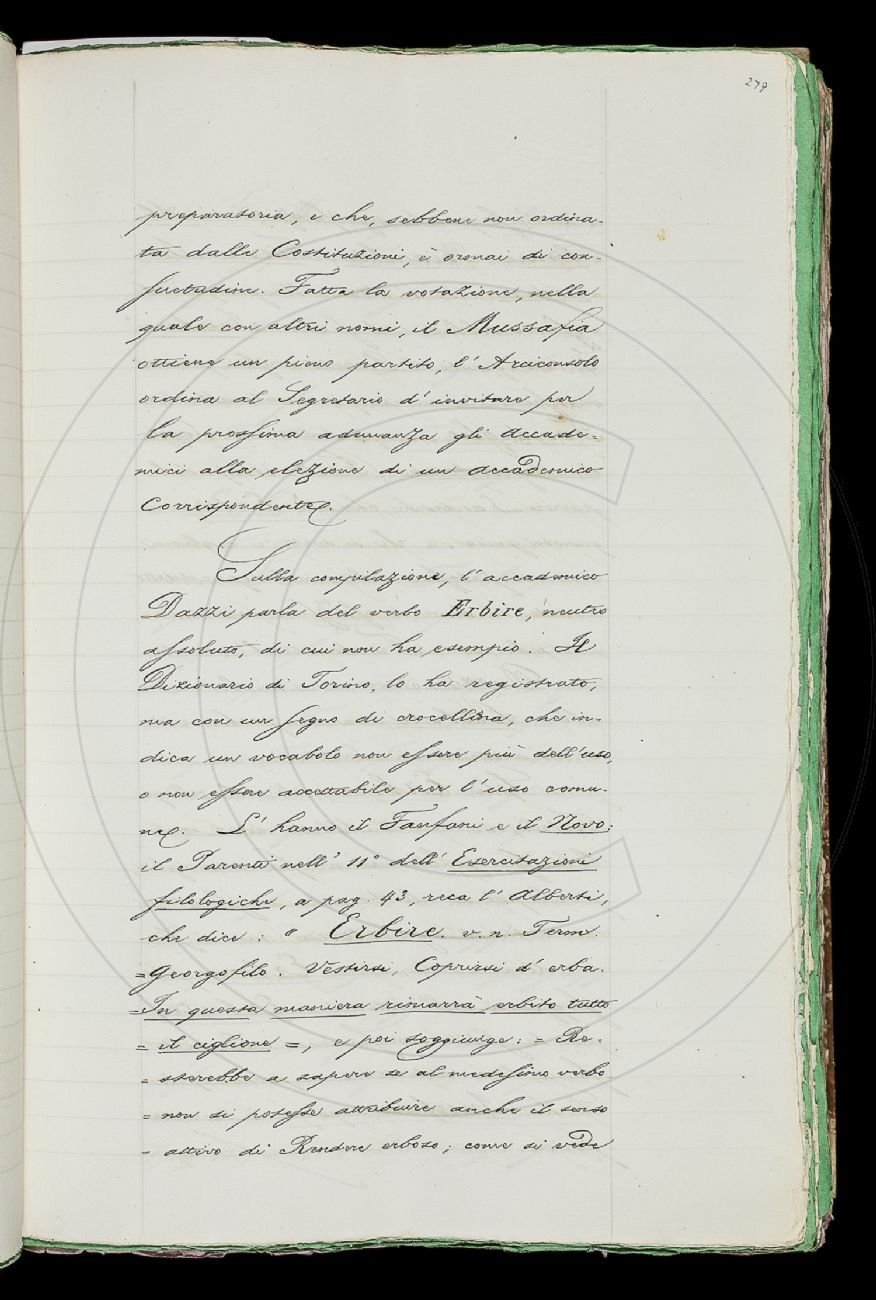 279
preparatoria, e che, sebbene non ordina-
ta dalle Costituzioni, è oromai di con-
suetudine. Fatta la votazione, nella
quale con altri nomi, il Mussafia
ottiene un pieno partito, l'Arciconsolo
ordina al Segretario d'invitare per
la prossima adunanza gli Accade-
mici alla elezione di un accademico
Corrispondente.
Sulla compilazione, l'accademico
Dazzi parla del verbo Erbire, neutro
assoluto, di cui non ha esempio. Il
Dizionario di Torino, lo ha registrato,
ma con un segno di crocellina, che in-
dica un vocabolo non essere più dell'uso,
o non essere accettabile per l'uso comu-
ne. L'hanno il Fanfani e il Novo:
il Parenti nell' 11° dell' Esercitazioni
filologiche, a pag. 43, reca l'Alberti,
che dice: " Erbire. v. n. Term.
=Georgofilo. Vestirsi, Coprirsi d'erba.
=In questa maniera rimarrà erbito tutto
= il ciglione =, e poi soggiunge: = Re-
= sterebbe a sapere se al medesimo verbo
= non si potesse attribuire anche il senso
- attivo di Rendere erboso; come si vede